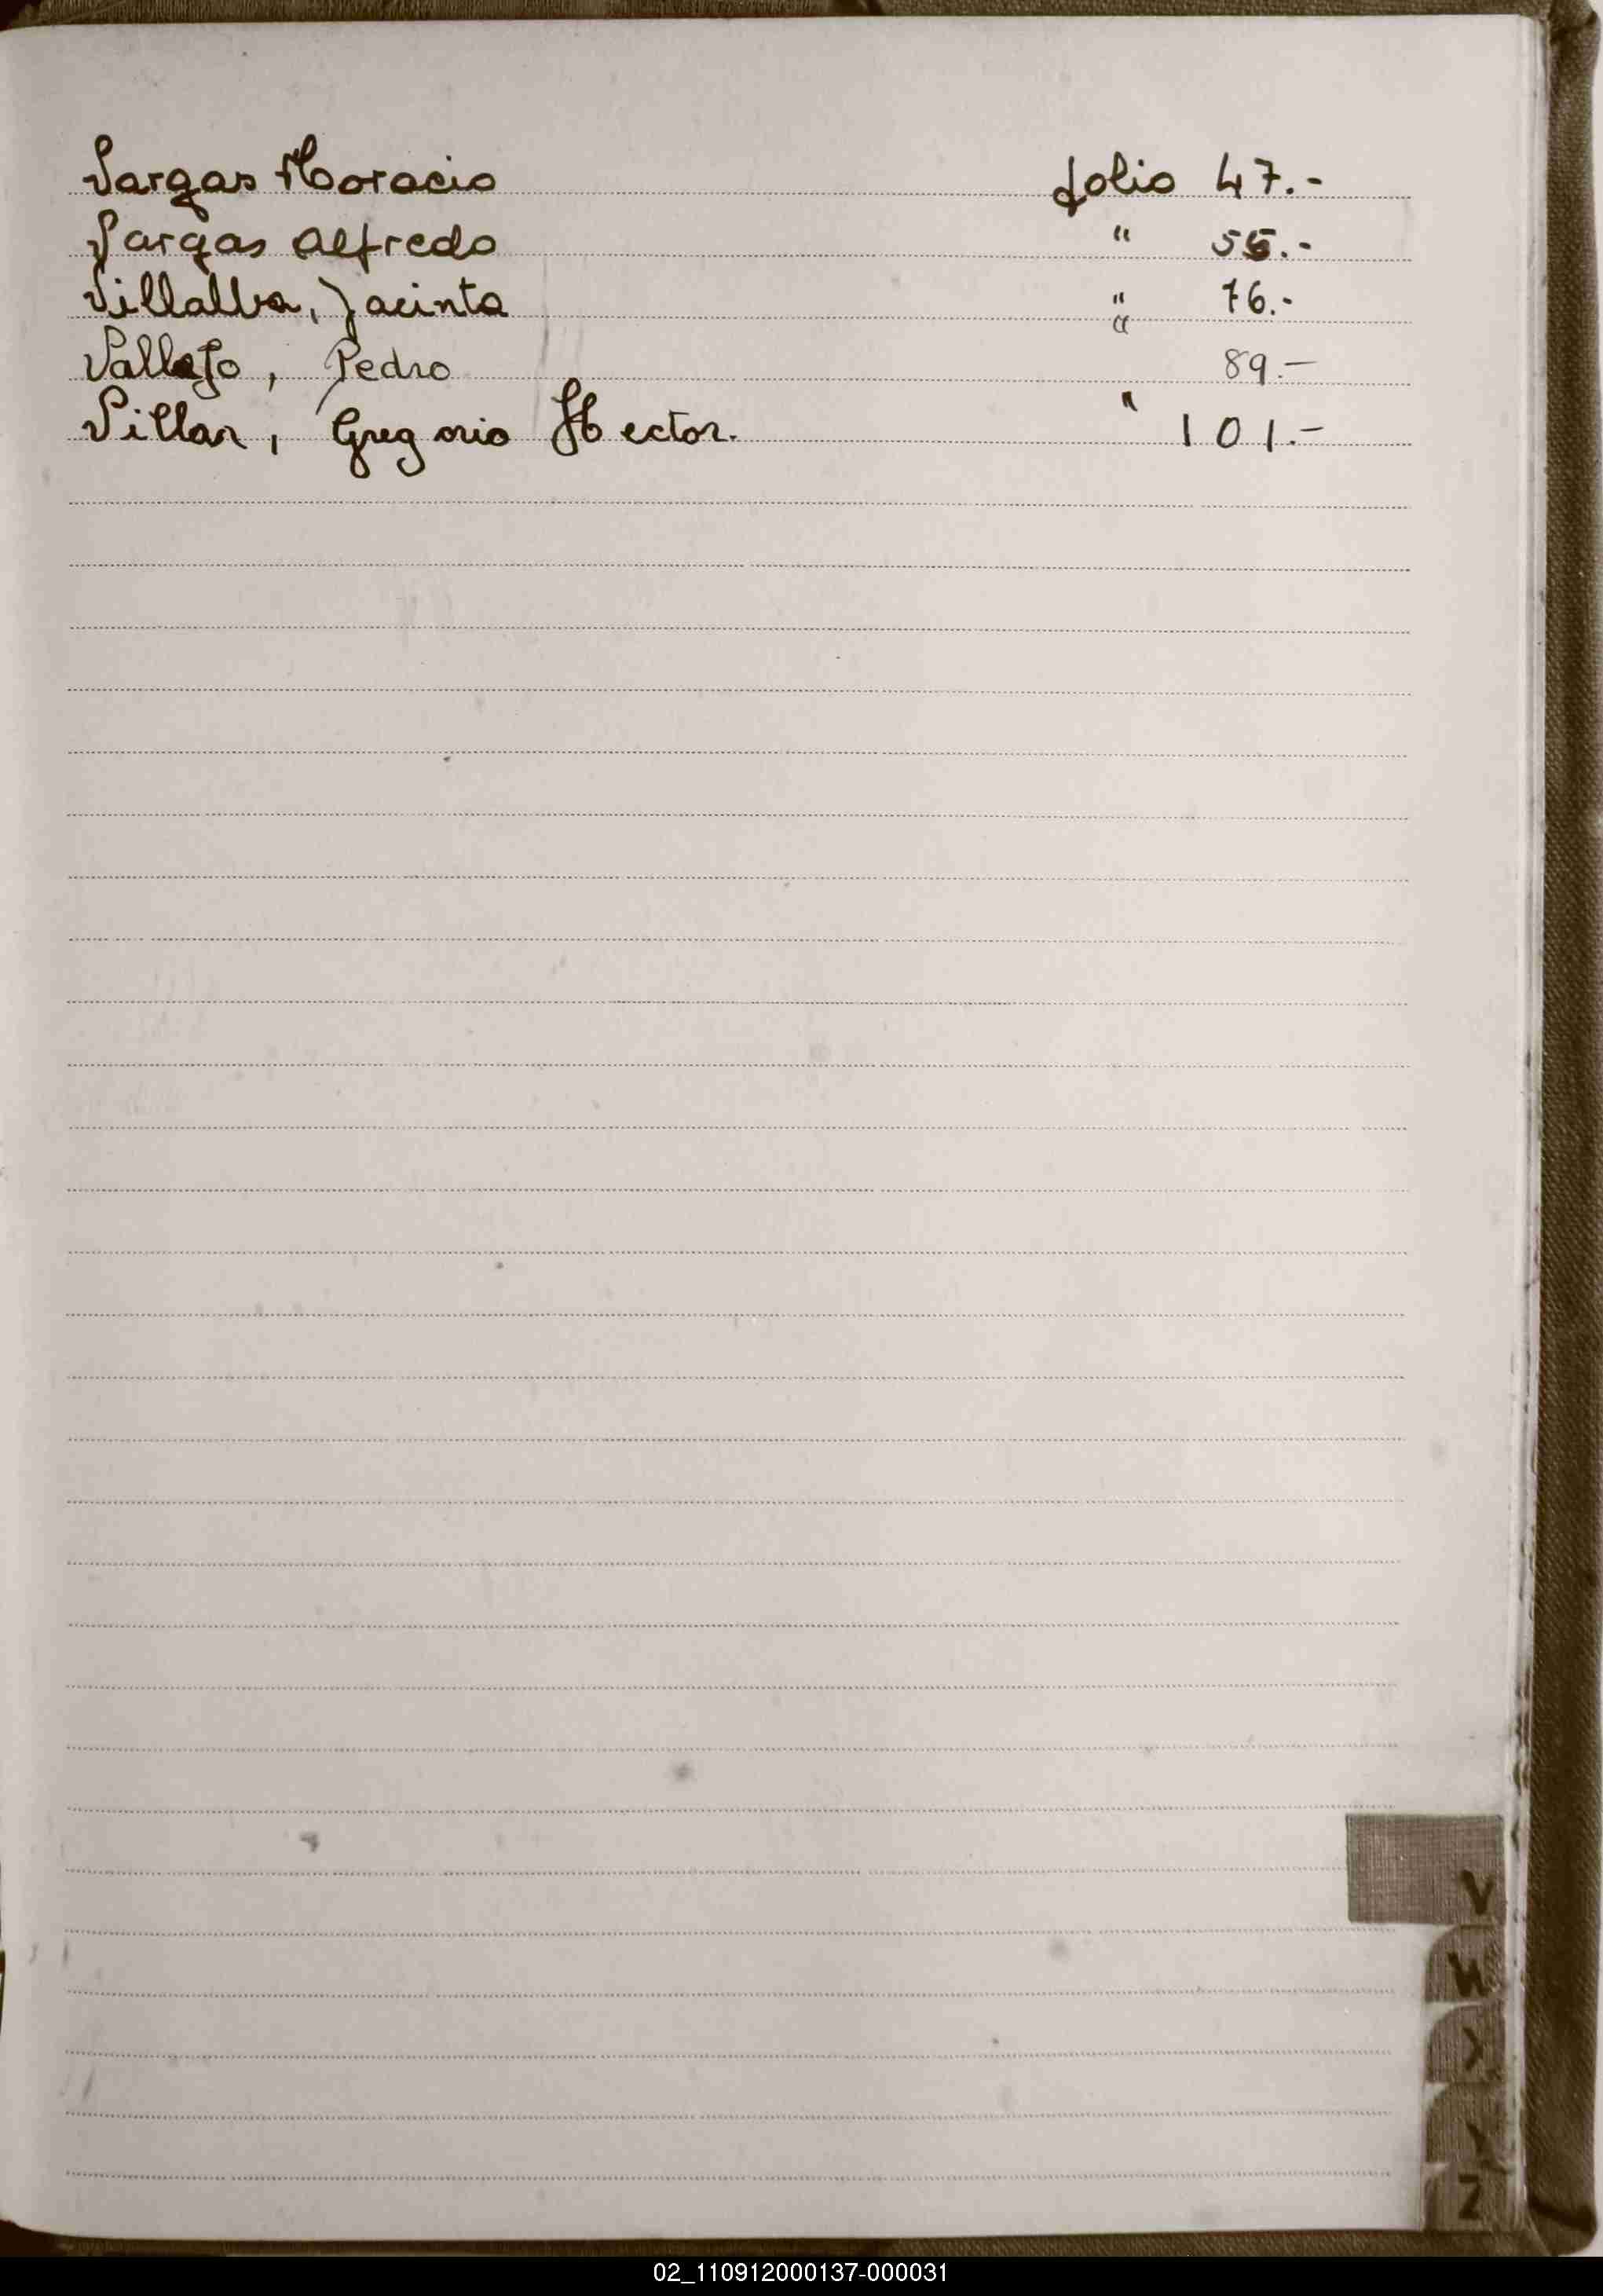 Vargas Horacio folio 47.-
Vargas Alfredo " 55.-
Villalba, Jacinto " 76.-
Vallejo, Pedro " 89.-
Villar, Gregorio Hector. " 101.-
V
W
X
Y
Z
02_110912000137-000031